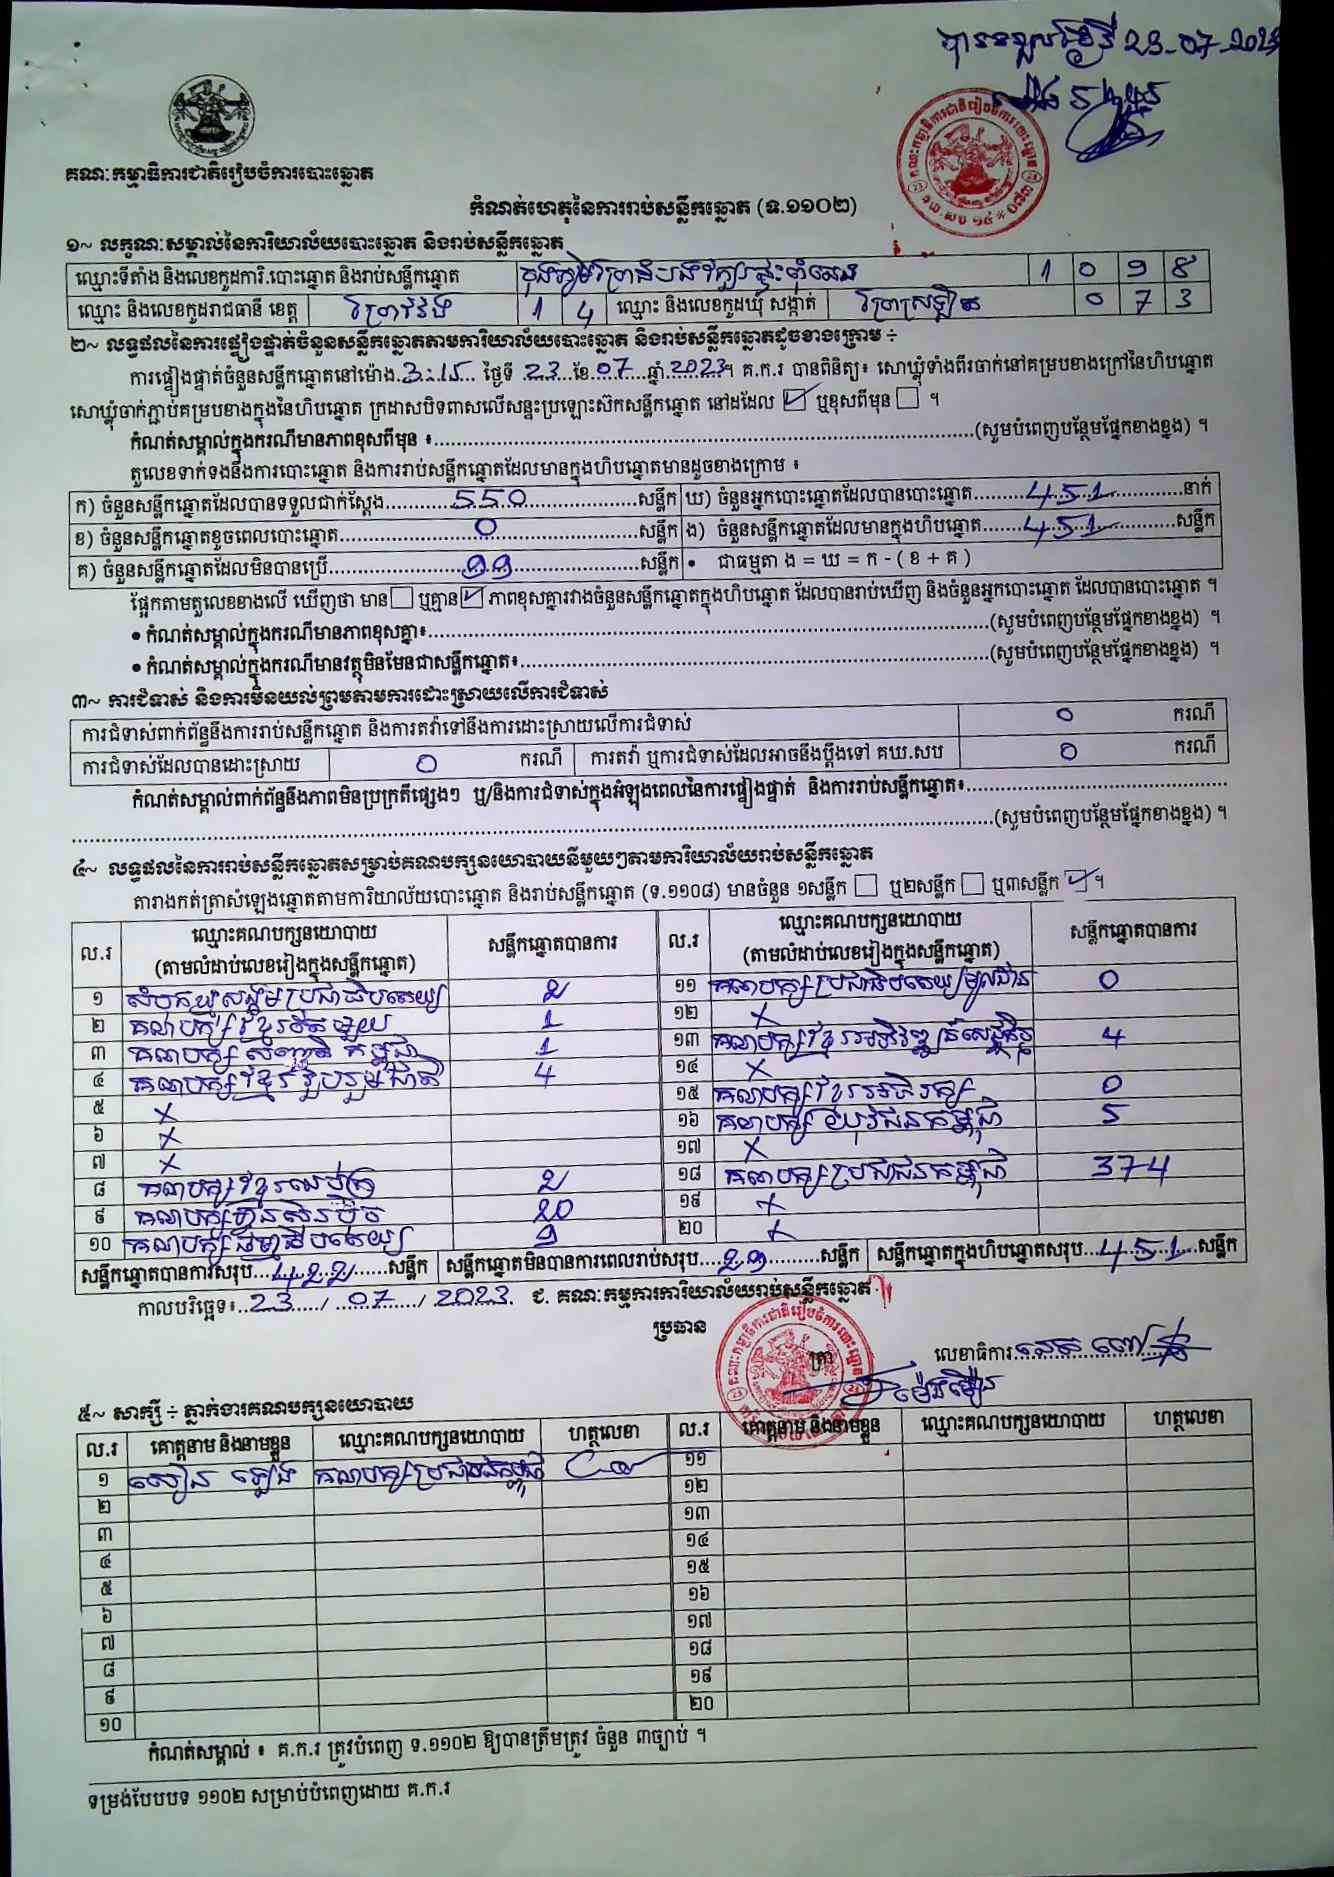 បានទទួលថ្ងៃទី 23-07-2023
គណៈកម្មាធិការជាតិរៀបចំការបោះឆ្នោត
កំណត់ហេតុនៃការរាប់សន្លឹកឆ្នោត (ទ.១១០២)
១~ លក្ខណៈសម្គាល់នៃការិយាល័យបោះឆ្នោត និងរាប់សន្លឹកឆ្នោត
ឈ្មោះទីតាំង និងលេខកូដការិ.បោះឆ្នោត និងរាប់សន្លឹកឆ្នោត 1 0 9 8
ឈ្មោះ និងលេខកូដរាជធានី ខេត្ត ព្រៃវែង 1 4 ឈ្មោះ និងលេខកូដឃុំ សង្កាត់ 0 7 3
២~ លទ្ធផលនៃការផ្ទៀងផ្ទាត់ចំនួនសន្លឹកឆ្នោតតាមការិយាល័យបោះឆ្នោត និងរាប់សន្លឹកឆ្នោតដូចខាងក្រោម ÷
ការផ្ទៀងផ្ទាត់ចំនួនសន្លឹកឆ្នោតនៅម៉ោង 3:15 ថ្ងៃទី 23 ខែ 07 ឆ្នាំ 2023។ គ.ក.រ បានពិនិត្យ៖ សោឃ្លុំទាំងពីរចាក់នៅគម្របខាងក្រៅនៃហិបឆ្នោត
សោឃ្លុំចាក់ភ្ជាប់គម្របខាងក្នុងនៃហិបឆ្នោត ក្រដាសបិទពាសលើសន្ទះប្រឡោះស៊កសន្លឹកឆ្នោត នៅដដែល ☑ ឬខុសពីមុន ☐ ។
កំណត់សម្គាល់ក្នុងករណីមានភាពខុសពីមុន ៖ (សូមបំពេញបន្ថែមផ្នែកខាងខ្នង) ។
តួលេខទាក់ទងនឹងការបោះឆ្នោត និងការរាប់សន្លឹកឆ្នោតដែលមានក្នុងហិបឆ្នោតមានដូចខាងក្រោម ៖
ក) ចំនួនសន្លឹកឆ្នោតដែលបានទទួលជាក់ស្តែង 550 សន្លឹក ឃ) ចំនួនអ្នកបោះឆ្នោតដែលបានបោះឆ្នោត 451 នាក់
ខ) ចំនួនសន្លឹកឆ្នោតខូចពេលបោះឆ្នោត 0 សន្លឹក ង) ចំនួនសន្លឹកឆ្នោតដែលមានក្នុងហិបឆ្នោត 451 សន្លឹក
គ) ចំនួនសន្លឹកឆ្នោតដែលមិនបានប្រើ 99 សន្លឹក • ជាធម្មតា ង = ឃ = ក - ( ខ + គ )
ផ្អែកតាមតួលេខខាងលើ ឃើញថា មាន ☐ ឬគ្មាន ☑ ភាពខុសគ្នារវាងចំនួនសន្លឹកឆ្នោតក្នុងហិបឆ្នោត ដែលបានរាប់ឃើញ និងចំនួនអ្នកបោះឆ្នោត ដែលបានបោះឆ្នោត ។
• កំណត់សម្គាល់ក្នុងករណីមានភាពខុសគ្នា៖ (សូមបំពេញបន្ថែមផ្នែកខាងខ្នង) ។
• កំណត់សម្គាល់ក្នុងករណីមានវត្ថុមិនមែនជាសន្លឹកឆ្នោត៖ (សូមបំពេញបន្ថែមផ្នែកខាងខ្នង) ។
៣~ ការជំទាស់ និងការមិនយល់ព្រមតាមការដោះស្រាយលើការជំទាស់
ការជំទាស់ពាក់ព័ន្ធនឹងការរាប់សន្លឹកឆ្នោត និងការតវ៉ាទៅនឹងការដោះស្រាយលើការជំទាស់ 0 ករណី
ការជំទាស់ដែលបានដោះស្រាយ 0 ករណី ការតវ៉ា ឬការជំទាស់ដែលអាចនឹងប្តឹងទៅ គឃ.សប 0 ករណី
កំណត់សម្គាល់ពាក់ព័ន្ធនឹងភាពមិនប្រក្រតីផ្សេងៗ ឬ/និងការជំទាស់ក្នុងអំឡុងពេលនៃការផ្ទៀងផ្ទាត់ និងការរាប់សន្លឹកឆ្នោត៖
(សូមបំពេញបន្ថែមផ្នែកខាងខ្នង) ។
៤~ លទ្ធផលនៃការរាប់សន្លឹកឆ្នោតសម្រាប់គណបក្សនយោបាយនីមួយៗតាមការិយាល័យរាប់សន្លឹកឆ្នោត
តារាងកត់ត្រាសំឡេងឆ្នោតតាមការិយាល័យបោះឆ្នោត និងរាប់សន្លឹកឆ្នោត (ទ.១១០៨) មានចំនួន ១សន្លឹក ☐ ឬ២សន្លឹក ☐ ឬ៣សន្លឹក ☑ ។
ល.រ ឈ្មោះគណបក្សនយោបាយ (តាមលំដាប់លេខរៀងក្នុងសន្លឹកឆ្នោត) សន្លឹកឆ្នោតបានការ ល.រ ឈ្មោះគណបក្សនយោបាយ (តាមលំដាប់លេខរៀងក្នុងសន្លឹកឆ្នោត) សន្លឹកឆ្នោតបានការ
១ សំបុកឃ្មុំសង្គមប្រជាធិបតេយ្យ 2 ១១ គណបក្សប្រជាធិបតេយ្យមូលដ្ឋាន 0
២ គណបក្សខ្មែរតែមួយ 1 ១២ X
៣ គណបក្សសញ្ជាតិកម្ពុជា 1 ១៣ គណបក្សខ្មែរអភិវឌ្ឍន៍សេដ្ឋកិច្ច 4
៤ គណបក្សខ្មែររួបរួមជាតិ 4 ១៤ X
៥ X ១៥ គណបក្សខ្មែរអភិរក្ស 0
៦ X ១៦ គណបក្សយុវជនកម្ពុជា 5
៧ X ១៧ X
៨ គណបក្សខ្មែរឈប់ក្រ 2 ១៨ គណបក្សប្រជាជនកម្ពុជា 374
៩ គណបក្សហ្វ៊ុនស៊ិនប៉ិច 20 ១៩ X
១០ គណបក្សធម្មាធិបតេយ្យ 9 ២០ X
សន្លឹកឆ្នោតបានការសរុប 422 សន្លឹក សន្លឹកឆ្នោតមិនបានការពេលរាប់សរុប 29 សន្លឹក សន្លឹកឆ្នោតក្នុងហិបឆ្នោតសរុប 451 សន្លឹក
កាលបរិច្ឆេទ៖ 23 / 07 / 2023 ជ. គណៈកម្មការការិយាល័យរាប់សន្លឹកឆ្នោត
ប្រធាន
ត្រា លេខាធិការ
៥~ សាក្សី ÷ ភ្នាក់ងារគណបក្សនយោបាយ
ល.រ គោត្តនាម និងនាមខ្លួន ឈ្មោះគណបក្សនយោបាយ ហត្ថលេខា ល.រ គោត្តនាម និងនាមខ្លួន ឈ្មោះគណបក្សនយោបាយ ហត្ថលេខា
១ គណបក្សប្រជាជនកម្ពុជា ១១
២ ១២
៣ ១៣
៤ ១៤
៥ ១៥
៦ ១៦
៧ ១៧
៨ ១៨
៩ ១៩
១០ ២០
កំណត់សម្គាល់ ៖ គ.ក.រ ត្រូវបំពេញ ទ.១១០២ ឱ្យបានត្រឹមត្រូវ ចំនួន ៣ច្បាប់ ។
ទម្រង់បែបបទ ១១០២ សម្រាប់បំពេញដោយ គ.ក.រ